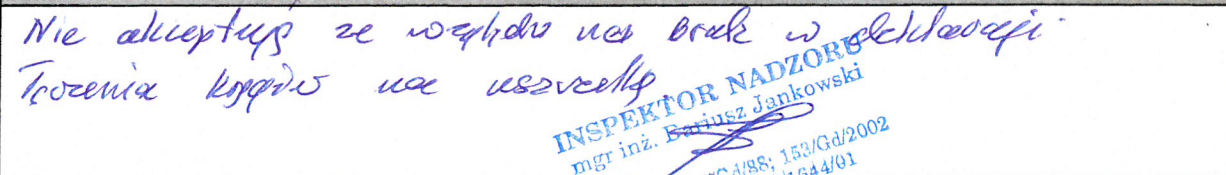 Nie akceptuję ze względu na brak w deklaracji
łączenia kręgów na uszczelkę.
INSPEKTOR NADZORU
mgr inż. Dariusz Jankowski
Gd/88; 153/Gd/2002
1644/01